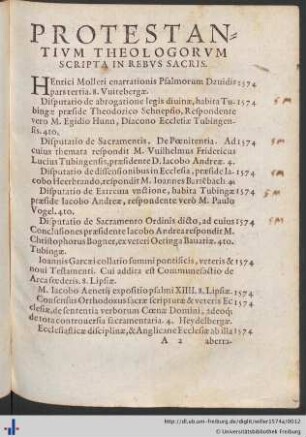 PROTESTAN-
TIVM THEOLOGORVM
SCRIPTA IN REBVS SACRIS.
HEnrici Molleri enarrationis Psalmorum Dauidis 1574
pars tertia. 8. Vuitebergæ.
Disputatio de abrogatione legis diuinæ, habita Tu- 1574
bingæ præside Theodorico Schnepfio, Respondente
vero M. Egidio Hunn, Diacono Ecclesiæ Tubingen-
sis. 4to.
Disputatio de Sacramentis. De Pœnitentia. Ad 1574
cuius themata respondit M. Vuilhelmus Fridericus
Lucius Tubingensis, præsidente D. Iacobo Andreæ. 4.
Disputatio de dissensionibus in Ecclesia, præside Ia- 1574
cobo Heerbrando, respondit M. Ioannes Bartebach. 4.
Disputatio de Extrema vnctione, habita Tubingæ 1574
præside Iacobo Andreæ, respondente verò M. Paulo
Vogel. 4to.
Disputatio de Sacramento Ordinis dicto, ad cuius 1574
Conclusiones præsidente Iacobo Andrea respondit M.
Christophorus Bogner, ex veteri Oetinga Bauariæ. 4to.
Tubingæ.
Ioannis Garcæi collatio summi pontificis, veteris & 1574
noui Testamenti. Cui addita est Communefactio de
Arca fœderis. 8. Lipsiæ.
M. Iacobo Aenetij expositio psalmi XIIII. 8. Lipsiæ. 1574
Consensus Orthodoxus sacræ scripturæ & veteris Ec- 1574
clesiæ, de sententia verborum Cœnæ Domini, adeoq́;
de tota controuersia sacramentaria. 4. Heydelbergæ.
Ecclesiasticæ disciplinæ, & Anglicanæ Ecclesiæ ab illa 1574
A 2 aberra-
http://dl.ub.uni-freiburg.de/diglit/willer1574a/0012
© Universitätsbibliothek Freiburg